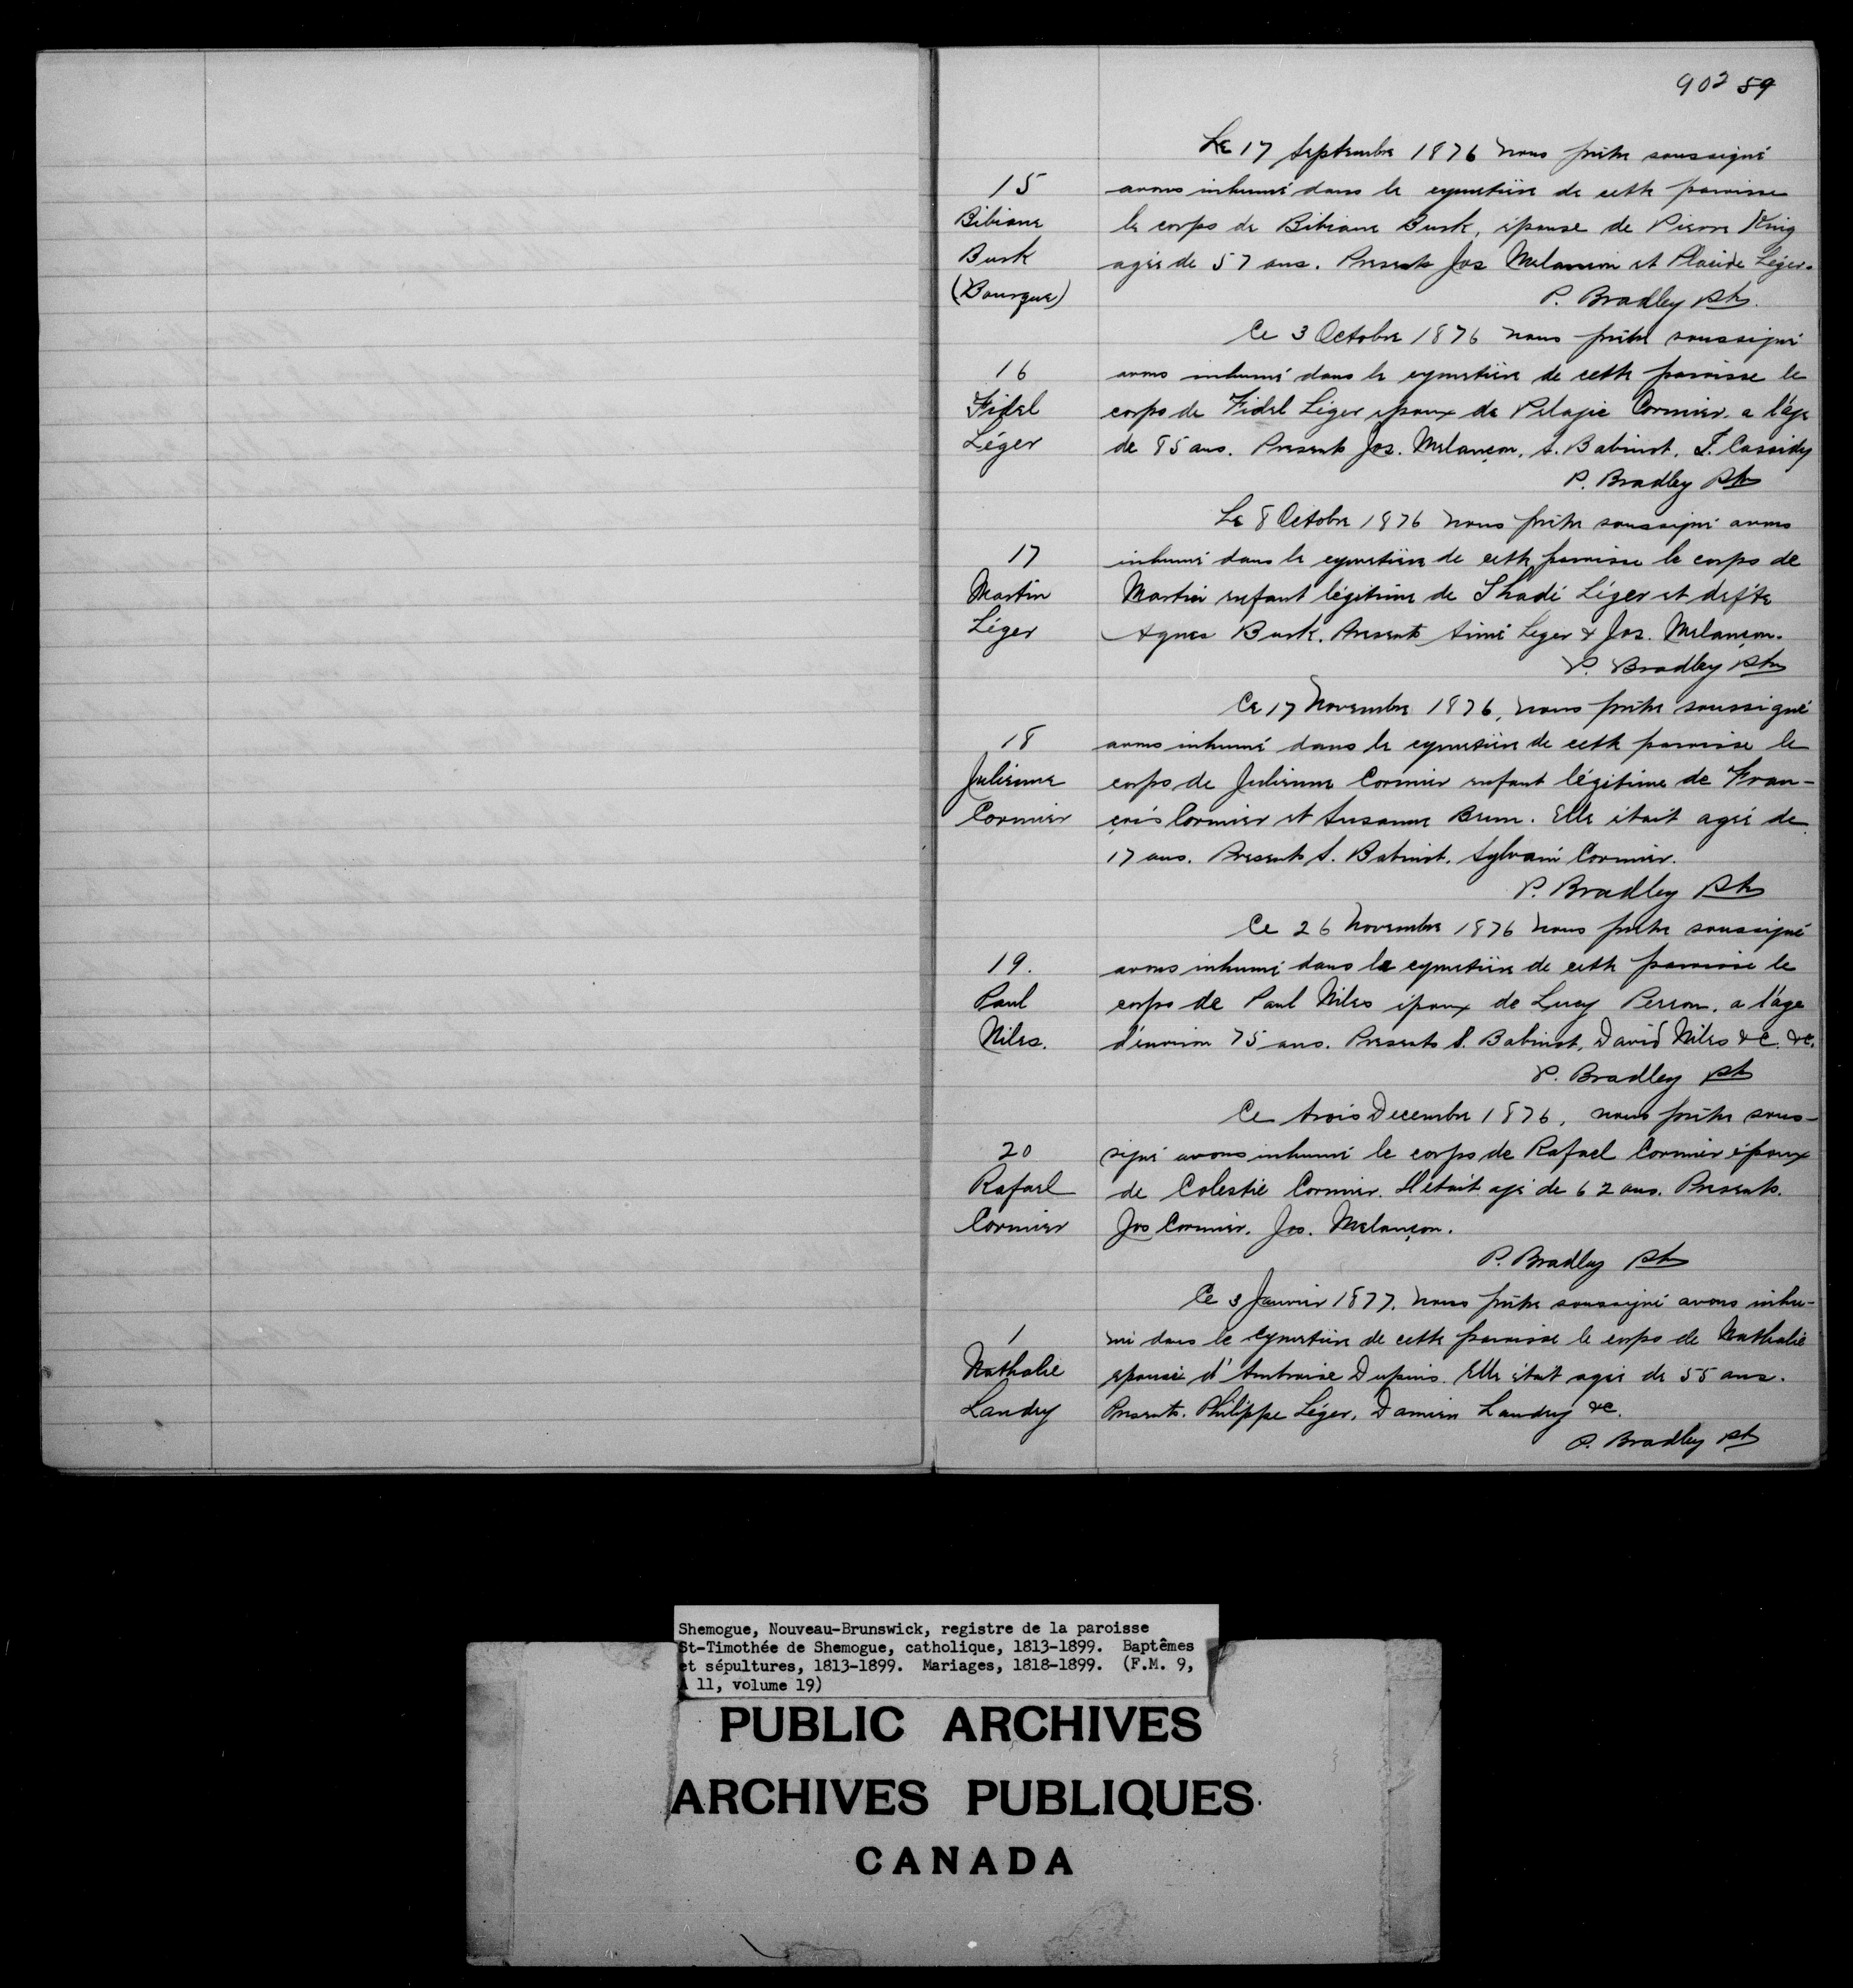 902 59
Le 17 Septembre 1876 nous prêtre soussigné
15
avons inhumé dans le cymetière de cette paroisse
Bibiane
le corps de Bibiane Burk, épouse de Pierre King
Burk
agée de 57 ans. Presents Jos Melancon et Placide Léger.
(Bourque)
P. Bradley Ptr.
Ce 3 Octobre 1876 nous prêtre soussigné
16
avons inhumé dans le cymetière de cette paroisse le
Fidel
corps de Fidel Léger epoux de Pelagie Cormier, a l'âge
Léger
de 85 ans. Presents Jos. Melançon, S. Babinot, T. Cassidy
P. Bradley Ptr
Le 8 Octobre 1876 nous prêtre soussigné avons
17
inhumé dans le cymetière de cette paroisse le corps de
Martin
Martin enfant légitime de Thadé Léger et defte
Léger
Agnes Burk. Presents Aimé Leger & Jos. Melançon.
P. Bradley Ptr
Ce 17 Novembre 1876, nous prêtre soussigné
18
avons inhumé dans le cymetière de cette paroisse le
Julienne
corps de Julienne Cormier enfant légitime de Fran-
Cormier
çois Cormier et Susanne Brun. Elle était agé de
17 ans. Presents S. Babinot, Sylvain Cormier.
P. Bradley Ptr
Ce 26 Novembre 1876 nous prêtre soussigné
19.
avons inhumé dans le cymetière de cette paroisse le
Paul
corps de Paul Niles époux de Lucy Perron, a l'âge
Niles.
d'environ 75 ans. Presents S. Babinot, David Niles &c. &c.
P. Bradley Ptr
Ce trois Decembre 1876, nous prêtre sous-
20
signé avons inhumé le corps de Rafael Cormier époux
Rafael
de Colestie Cormier. Il était agé de 62 ans. Presents.
Cormier
Jos Cormier. Jos. Melançon.
P. Bradley Ptr
Ce 3 Janvier 1877. nous prêtre soussigné avons inhu-
1
mé dans le Cymetière de cette paroisse le corps de Nathalie
Nathalie
epousée d'Ambroise Dupuis. Elle était agée de 55 ans.
Landry
Presents. Philippe Léger, Damien Landry &c.
P. Bradley Ptr
Shemogue, Nouveau-Brunswick, registre de la paroisse
St-Timothée de Shemogue, catholique, 1813-1899. Baptêmes
et sépultures, 1813-1899. Mariages, 1818-1899. (F.M. 9,
A 11, volume 19)
PUBLIC ARCHIVES
ARCHIVES PUBLIQUES
CANADA